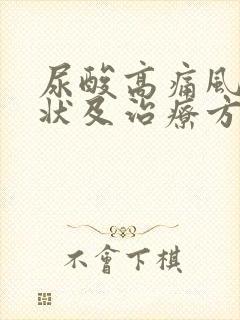 尿酸高痛風
狀及治療方
不會下棋